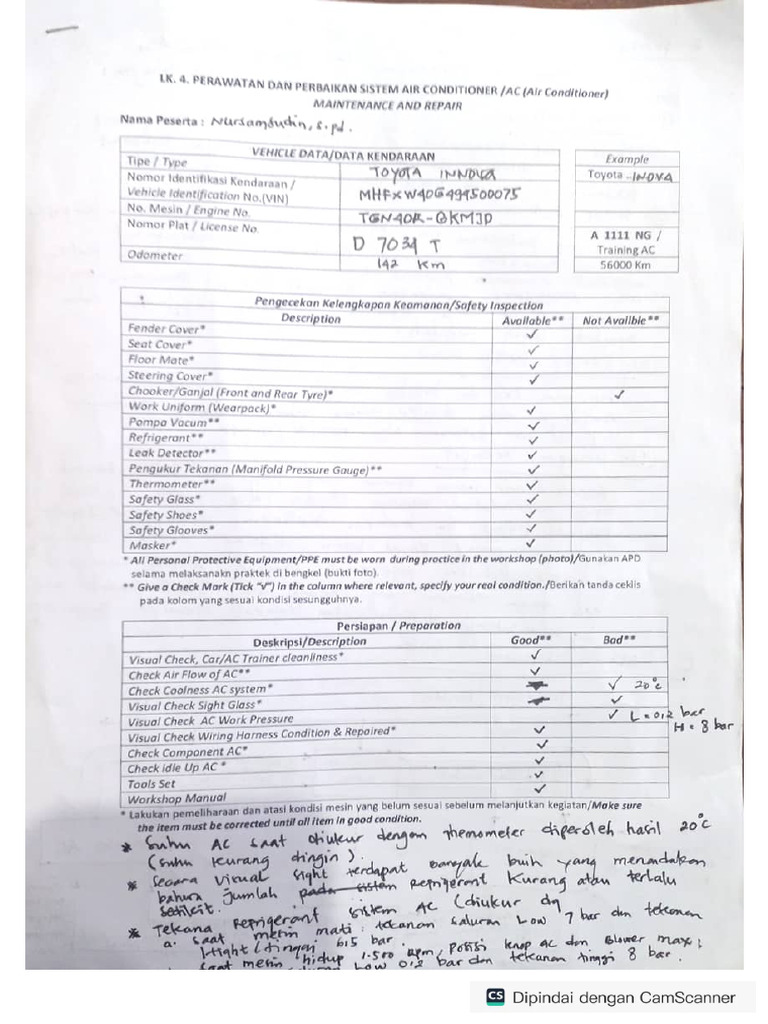 LK. 4. PERAWATAN DAN PERBAIKAN SISTEM AIR CONDITIONER /AC (Air Conditioner)
MAINTENANCE AND REPAIR
Nama Peserta : Nursamsudin, S.pd.
VEHICLE DATA/DATA KENDARAAN
Example
Tipe / Type TOYOTA INNOVA
Toyota - INOVA
Nomor Identifikasi Kendaraan /
Vehicle Identification No.(VIN) MHFXW40G494500075
No. Mesin / Engine No. TGN40R-GKMJD
Nomor Plat / License No. D 7034 T
A 1111 NG /
Training AC
Odometer 142 Km
56000 Km
Pengecekan Kelengkapan Keamanan/Safety Inspection
Description Available** Not Availble**
Fender Cover* ✓
Seat Cover* ✓
Floor Mate* ✓
Steering Cover* ✓
Chooker/Ganjal (Front and Rear Tyre)* ✓
Work Uniform (Wearpack)* ✓
Pompa Vacum** ✓
Refrigerant** ✓
Leak Detector** ✓
Pengukur Tekanan (Manifold Pressure Gauge)** ✓
Thermometer** ✓
Safety Glass* ✓
Safety Shoes* ✓
Safety Glooves* ✓
Masker* ✓
* All Personal Protective Equipment/PPE must be worn during practice in the workshop (photo)/Gunakan APD
selama melaksanakn praktek di bengkel (bukti foto).
** Give a Check Mark (Tick "V") in the column where relevant, specify your real condition./Berikan tanda ceklis
pada kolom yang sesuai kondisi sesungguhnya.
Persiapan / Preparation
Deskripsi/Description Good** Bad**
Visual Check, Car/AC Trainer cleanliness* ✓
Check Air Flow of AC** ✓
Check Coolness AC system* ✓ 20°c
Visual Check Sight Glass* ✓
Visual Check AC Work Pressure ✓ L = 0,2 bar
H = 8 bar
Visual Check Wiring Harness Condition & Repaired* ✓
Check Component AC* ✓
Check Idle Up AC * ✓
Tools Set ✓
Workshop Manual ✓
* Lakukan pemeliharaan dan atasi kondisi mesin yang belum sesuai sebelum melanjutkan kegiatan/Make sure
the item must be corrected until all item in good condition.
* Suhu AC saat diukur dengan themometer diperoleh hasil 20°c
(suhu kurang dingin).
* Secara visual sight terdapat banyak buih yang menandakan
bahwa jumlah pada sistem Refrigerant kurang atau terlalu
sedikit.
* Tekana Refrigerant sistem AC (diukur dg
a. saat mesin mati : tekanan saluran Low 7 bar dan tekanan
Hight (tinggi) 6,5 bar.
saat mesin hidup 1.500 rpm, posisi knop ac dan Blower max ;
Low 0,2 bar dan tekanan tinggi 8 bar.
Dipindai dengan CamScanner